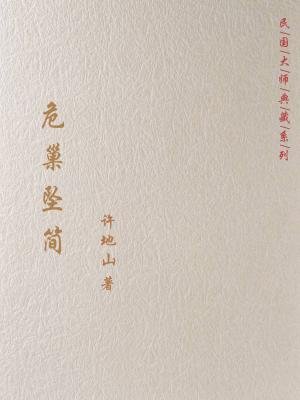 民|国|大|师|典|藏|系|列
危巢坠简
许地山 著